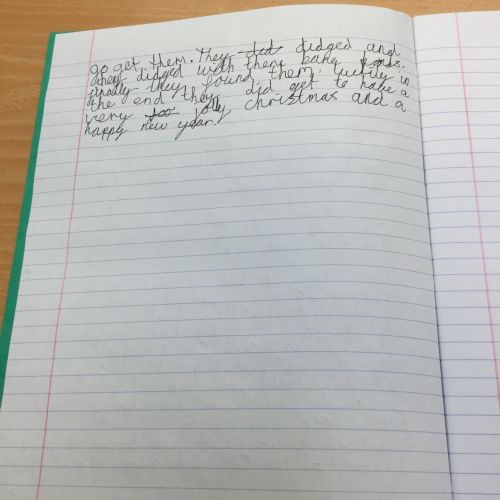 go get them. They did didged and
they didged with there bare hands.
finally they found them. luckily in
the end they did get to have a
very too jolly christmas and a
happy new year!